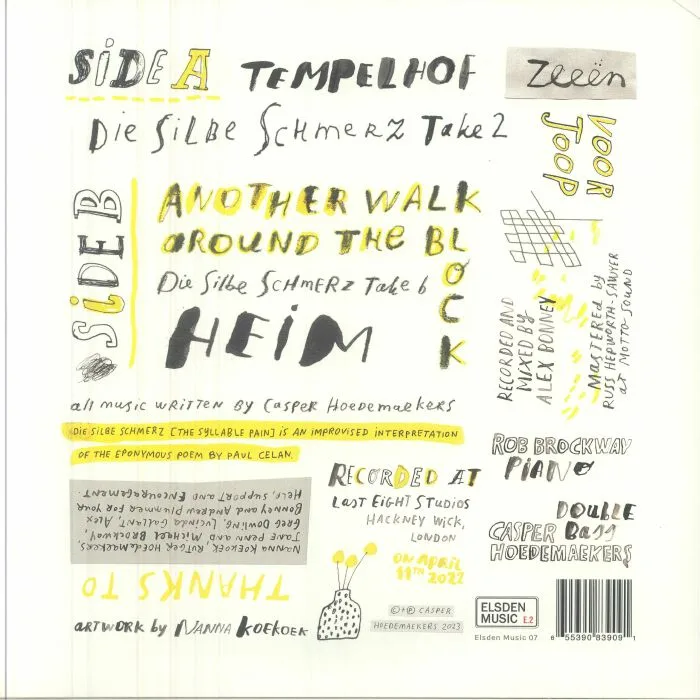 SiDE A TEMPELHOF
Die SiLBE SCHMERZ Take 2
SiDE B
ANOTHER WALK
AROUND THE BLOCK
Die Silbe SCHMERZ Take 6
HEIM
all music WRITTEN BY Casper Hoedemaekers
DIE SILBE SCHMERZ [THE SYLLABLE PAIN] IS AN IMPROVISED INTERPRETATION
OF THE EPONYMOUS POEM BY PAUL CELAN.
THANKS TO
NANNA KOEKOEK, RUTGER HOEDEMAEKERS,
JANE PENN AND MICHAEL BROCKWAY,
GREG DOWLING, LUCINDA GALLANT, ALEX
BONNEY AND ANDREW PLUMMER FOR YOUR
HELP, SUPPORT AND ENCOURAGEMENT.
ARTWORK by NANNA KOEKOEK
RECORDED AT
LAST EIGHT STUDIOS
HACKNEY WICK,
LONDON
ON APRIL
11TH 2022
©+℗ CASPER
HOEDEMAEKERS 2023
Zeeën
VOOR
JOOP
RECORDED AND
MIXED BY
ALEX BONNEY
MASTERED by
RUSS HEPWORTH-SAWYER
at MOTTO-SOUND
ROB BROCKWAY
PIANO
DOUBLE
CASPER BASS
HOEDEMAEKERS
ELSDEN
MUSIC E.2
Elsden Music 07
6 55390 83909 1